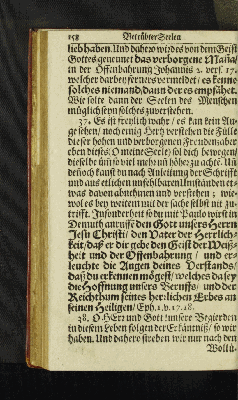 158 Betrübter Seelen
lieb haben. Und dahero wird es von dem Geist
Gottes genennet das verborgene Maña/
in der Offenbahrung Johannis 2. vers. 17.
welcher darbey ferners vermeldet / es kenne
solches niemand/ dann der es empfähet.
Wie solte dann der Seelen des Menschen
müglich seyn solches zuverstehen.
37. Es ist freylich wahr / es kan kein Au-
ge sehen / noch einig Hertz verstehen die Fülle
dieser hohen und verborgenen Freuden: aber
eben dieses/ O meine Seele/ sol dich bewegen/
dieselbe umb so viel mehr
dennoch kanst du nach Anleitung der Schrifft
und aus etlichen unfehlbaren Umständen et-
was davon abnehmen und verstehen ; wie-
wol es bey weitem mit der sache selbst nit zu-
trifft. Insonderheit so du mit Paulo wirst in
Demuth anruffē den Gott unsers Herrn
Jesu Christi/ den Vater der Herrlich-
keit/ daß er dir gebe den Geist der Weiß-
heit und der Offenbahrung / und er-
leuchte die Augen deines Verstands/
daß du erkennen mögest/ welches da sey
die Hoffnung unsers Beruffs/ und der
Reichthum seines herrlichen Erbes an
seinen Heiligen/ Eph. 1. v. 17. 18.
38. O HErr und Gott! unsere Begierden
in diesem Leben folgen der Erkäntniß/ so wir
haben. Und dahero streben wir nur nach den
Wollü-